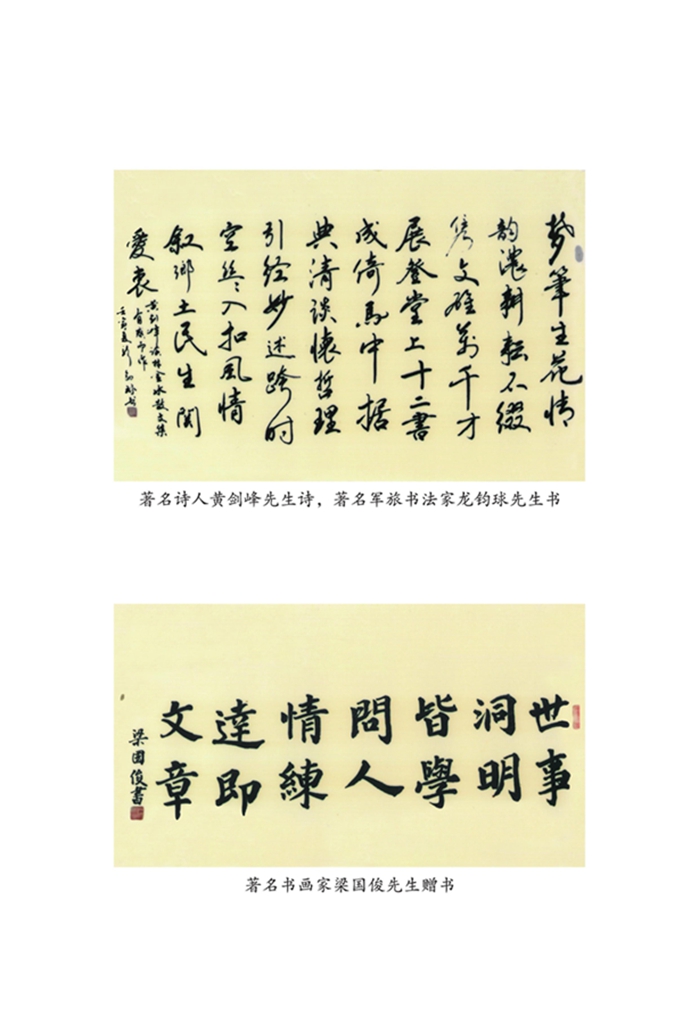 梦筆生花情
韵濃耕耘不缀
隽文雄萬千才
展登堂上十二書
成倚馬中据
典清談懷哲理
引经妙述跨时
空丝々入扣風情
叙鄉土民生関
愛衷
黄剑峰读林金水散文集
有感而作
著名诗人黄剑峰先生诗，著名军旅书法家龙钧球先生书
世事
洞明
皆學
問人
情練
達即
文章
梁国俊書
著名书画家梁国俊先生赠书